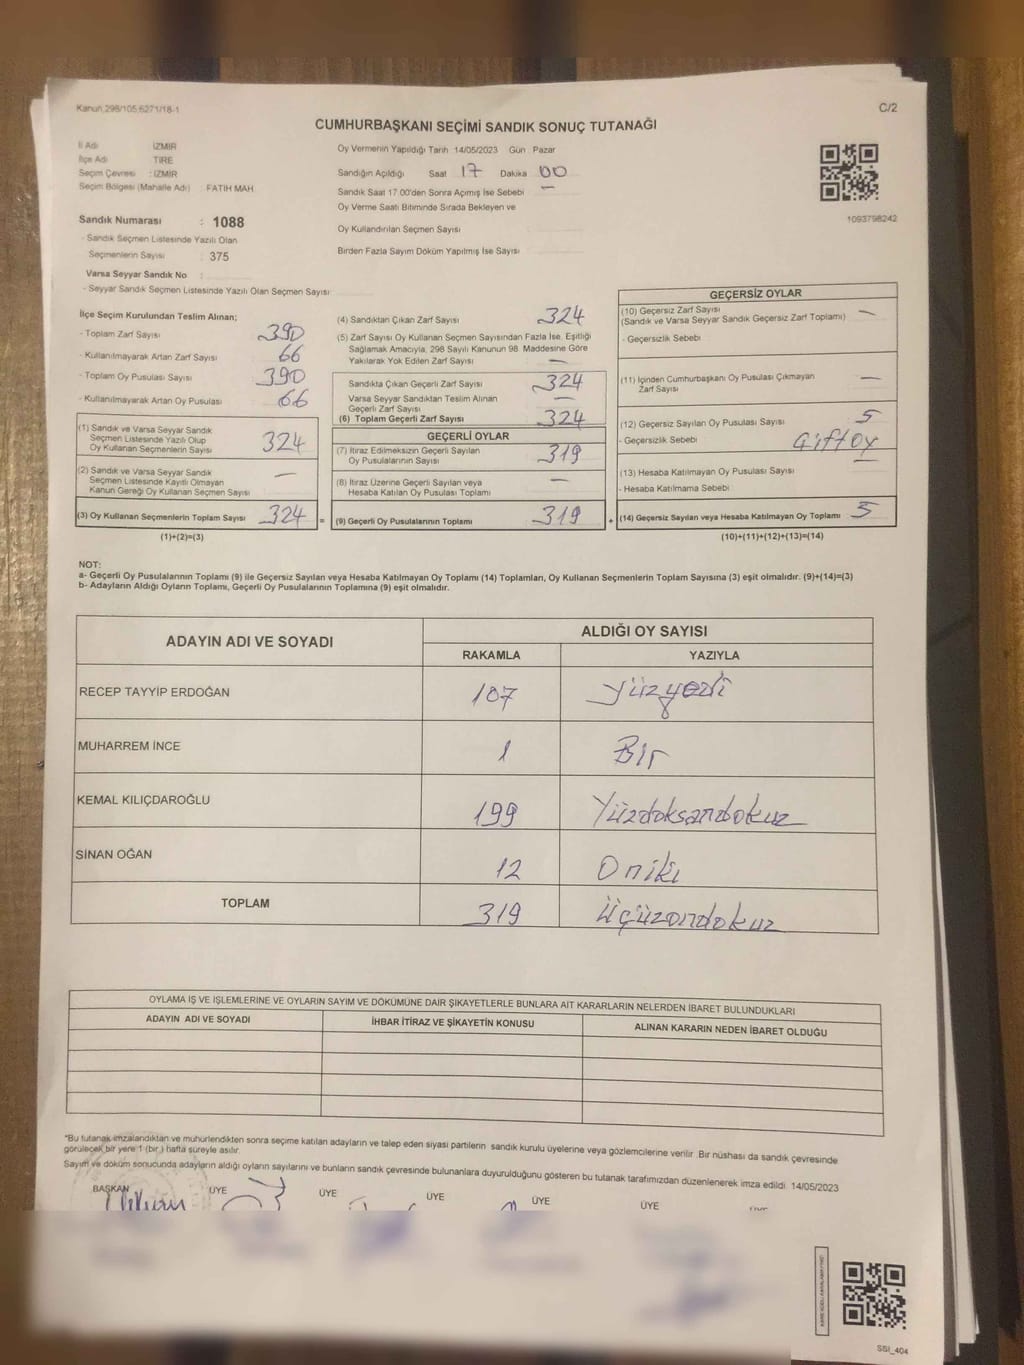 Kanun 298/105,6271/18-1
C/2
CUMHURBAŞKANI SEÇİMİ SANDIK SONUÇ TUTANAĞI
İl Adı İZMİR
İlçe Adı TİRE
Seçim Çevresi : İZMİR
Seçim Bölgesi (Mahalle Adı) FATİH MAH.
Sandık Numarası : 1088
- Sandık Seçmen Listesinde Yazılı Olan
Seçmenlerin Sayısı : 375
Varsa Seyyar Sandık No :
- Seyyar Sandık Seçmen Listesinde Yazılı Olan Seçmen Sayısı
Oy Vermenin Yapıldığı Tarih 14/05/2023 Gün : Pazar
Sandığın Açıldığı Saat 17 Dakika 00
Sandık Saat 17.00'den Sonra Açımış İse Sebebi —
Oy Verme Saati Bitiminde Sırada Bekleyen ve
Oy Kullandırılan Seçmen Sayısı
Birden Fazla Sayım Döküm Yapılmış İse Sayısı
1093798242
İlçe Seçim Kurulundan Teslim Alınan;
- Toplam Zarf Sayısı 390
- Kullanılmayarak Artan Zarf Sayısı 66
- Toplam Oy Pusulası Sayısı 390
- Kullanılmayarak Artan Oy Pusulası 66
(1) Sandık ve Varsa Seyyar Sandık
Seçmen Listesinde Yazılı Olup
Oy Kullanan Seçmenlerin Sayısı 324
(2) Sandık ve Varsa Seyyar Sandık
Seçmen Listesinde Kayıtlı Olmayan
Kanun Gereği Oy Kullanan Seçmen Sayısı —
(3) Oy Kullanan Seçmenlerin Toplam Sayısı 324 =
(1)+(2)=(3)
(4) Sandıktan Çıkan Zarf Sayısı 324
(5) Zarf Sayısı Oy Kullanan Seçmen Sayısından Fazla İse, Eşitliği
Sağlamak Amacıyla, 298 Sayılı Kanunun 98. Maddesine Göre
Yakılarak Yok Edilen Zarf Sayısı —
Sandıkta Çıkan Geçerli Zarf Sayısı 324
Varsa Seyyar Sandıktan Teslim Alınan
Geçerli Zarf Sayısı —
(6) Toplam Geçerli Zarf Sayısı 324
GEÇERLİ OYLAR
(7) İtiraz Edilmeksizin Geçerli Sayılan
Oy Pusulalarının Sayısı 319
(8) İtiraz Üzerine Geçerli Sayılan veya
Hesaba Katılan Oy Pusulası Toplamı —
(9) Geçerli Oy Pusulalarının Toplamı 319 +
GEÇERSİZ OYLAR
(10) Geçersiz Zarf Sayısı —
(Sandık ve Varsa Seyyar Sandık Geçersiz Zarf Toplamı)
- Geçersizlik Sebebi
(11) İçinden Cumhurbaşkanı Oy Pusulası Çıkmayan —
Zarf Sayısı
(12) Geçersiz Sayılan Oy Pusulası Sayısı 5
- Geçersizlik Sebebi Çiftoy
(13) Hesaba Katılmayan Oy Pusulası Sayısı —
- Hesaba Katılmama Sebebi
(14) Geçersiz Sayılan veya Hesaba Katılmayan Oy Toplamı 5
(10)+(11)+(12)+(13)=(14)
NOT:
a- Geçerli Oy Pusulalarının Toplamı (9) ile Geçersiz Sayılan veya Hesaba Katılmayan Oy Toplamı (14) Toplamları, Oy Kullanan Seçmenlerin Toplam Sayısına (3) eşit olmalıdır. (9)+(14)=(3)
b- Adayların Aldığı Oyların Toplamı, Geçerli Oy Pusulalarının Toplamına (9) eşit olmalıdır.
ADAYIN ADI VE SOYADI ALDIĞI OY SAYISI
RAKAMLA YAZIYLA
RECEP TAYYİP ERDOĞAN 107 Yüzyedi
MUHARREM İNCE 1 Bir
KEMAL KILIÇDAROĞLU 199 Yüzdoksandokuz
SİNAN OĞAN 12 Oniki
TOPLAM 319 Üçüzondokuz
OYLAMA İŞ VE İŞLEMLERİNE VE OYLARIN SAYIM VE DÖKÜMÜNE DAİR ŞİKAYETLERLE BUNLARA AİT KARARLARIN NELERDEN İBARET BULUNDUKLARI
ADAYIN ADI VE SOYADI İHBAR İTİRAZ VE ŞİKAYETİN KONUSU ALINAN KARARIN NEDEN İBARET OLDUĞU
*Bu tutanak imzalandıktan ve mühürlendikten sonra seçime katılan adayların ve talep eden siyasi partilerin sandık kurulu üyelerine veya gözlemcilerine verilir. Bir nüshası da sandık çevresinde
görülecek bir yere 1 (bir) hafta süreyle asılır.
Sayım ve döküm sonucunda adayların aldığı oyların sayılarını ve bunların sandık çevresinde bulunanlara duyurulduğunu gösteren bu tutanak tarafımızdan düzenlenerek imza edildi. 14/05/2023
BAŞKAN ÜYE ÜYE ÜYE ÜYE ÜYE
SSİ_404